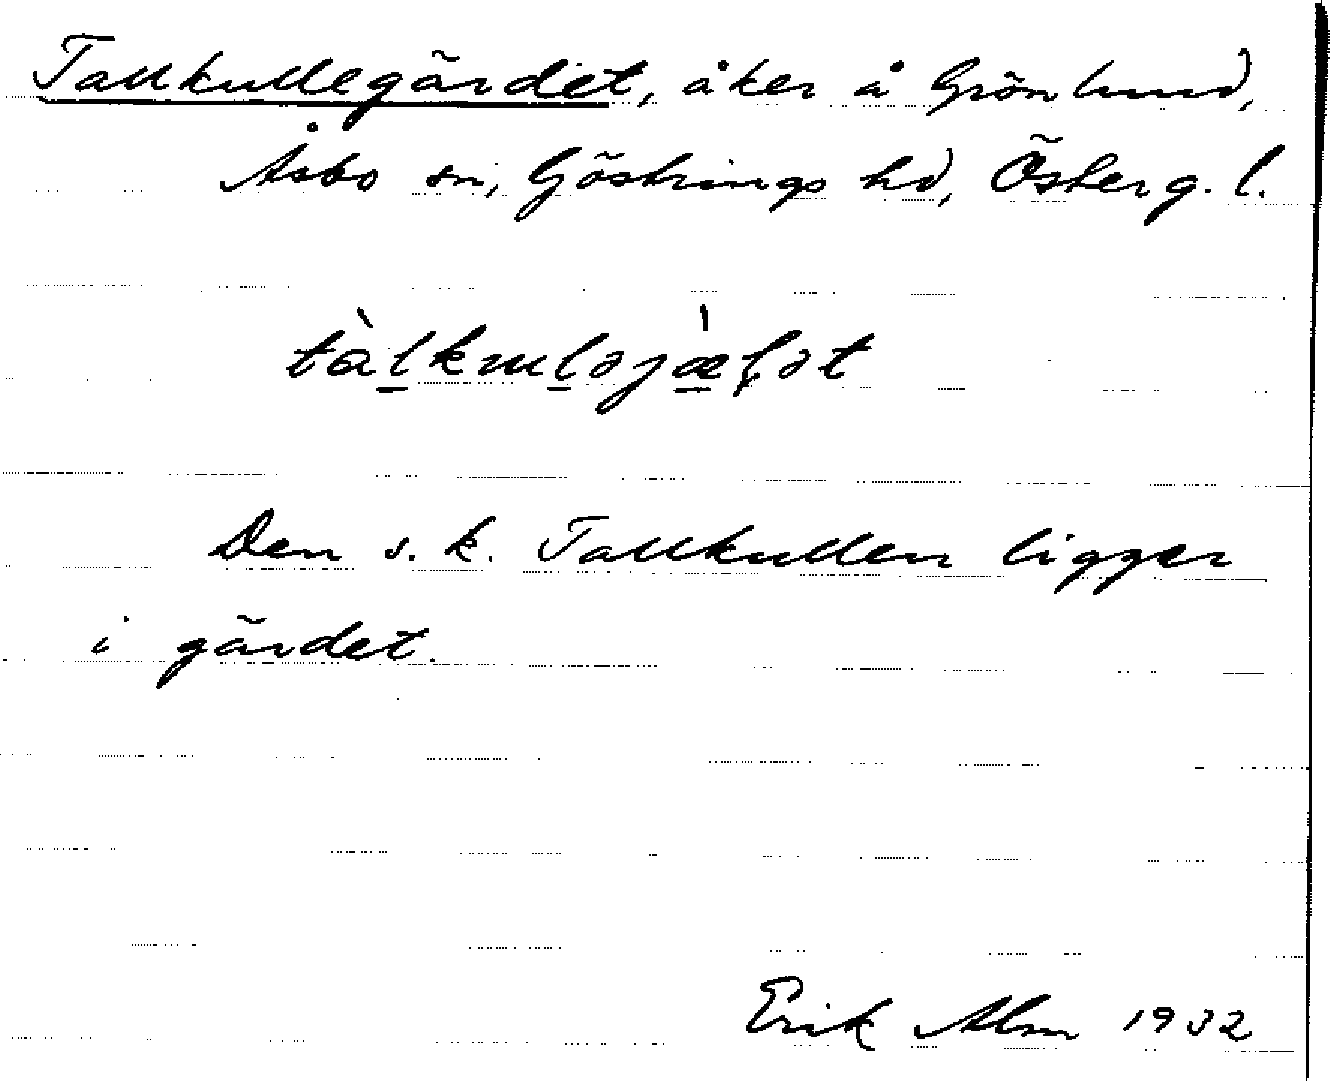 Tallkullegärdet, åker å Grönlund,
Åsbo sn, Göstrings hd, Österg. l.
tàl̠kul̠əjæ̠̀ɭət
Den s. k. Tallkullen ligger
i gärdet.
Erik Alm 1932